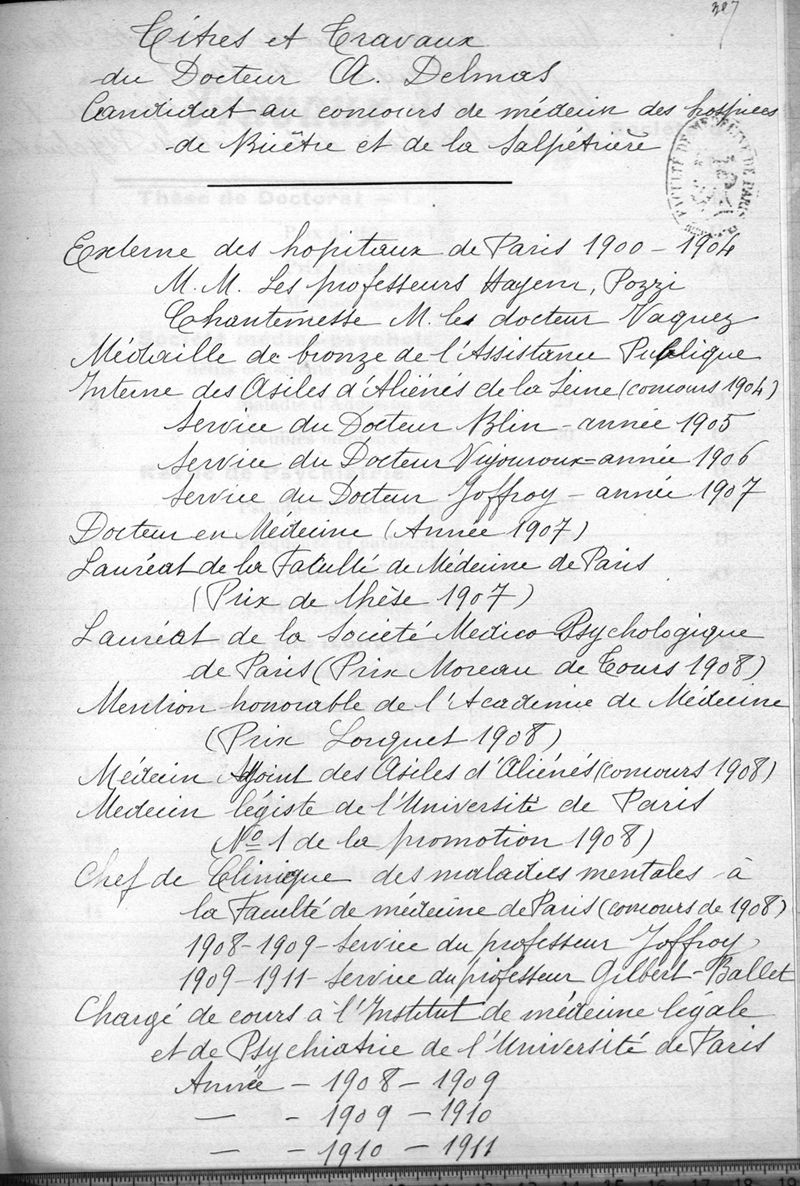 Titres et Travaux
du Docteur A. Delmas
Candidat au concours de médecin des hospices
de Bicêtre et de la Salpétrière
FACULTÉ DE MEDECINE DE PARIS
Externe des hopitaux de Paris 1900 - 1904
M. M. Les professeurs Hayem, Pozzi
Chantemesse M. les docteur Vaquez
Médaille de bronze de l'Assistance Publique
Interne des Asiles d'Aliénés de la Seine (concours 1904)
Service du Docteur Blin - année 1905
Service du Docteur Vigouroux = année 1906
Service du Docteur Joffroy - année 1907
Docteur en Médecine (Année 1907)
Lauréat de la Faculté de Médecine de Paris
(Prix de thèse 1907)
Lauréat de la Société Medico Psychologique
de Paris (Prix Moreau de Tours 1908)
Mention honorable de l'Academie de Médecine
(Prix Lorquet 1908)
Médecin Adjoint des Asiles d'Aliénés (concours 1908)
Medecin légiste de l'Université de Paris
(No 1 de la promotion 1908)
Chef de Clinique des maladies mentales à
la Faculté de médecine de Paris (concours de 1908)
1908-1909 - Service du professeur Joffroy
1909-1911 - Service du professeur Gilbert-Ballet
Chargé de cours à l'Institut de médecine légale
et de Psychiatrie de l'Université de Paris
Année - 1908 - 1909
— - 1909 - 1910
— - 1910 - 1911
10 11 12 13 14 15 16 17 18 19